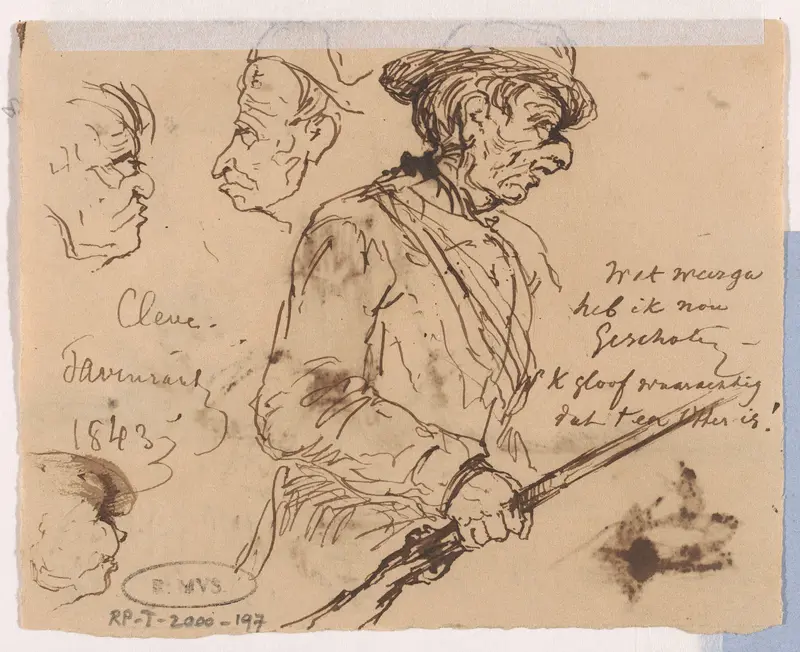 Cleve.
1843
Wat
heb ik nou
Geschoten
'K gloof waarachtig
dat t een Otter is!
R. MVS.
RP-T-2000-197